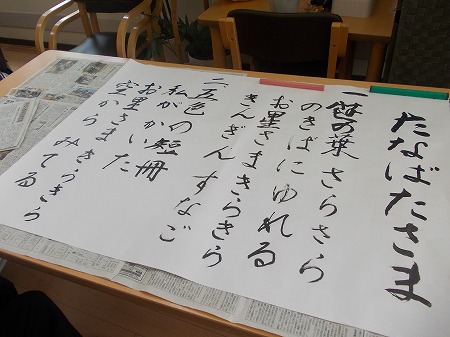 たなばたさま
一 笹の葉 さらさら
のきばにゆれる
お星さまきらきら
きんぎんすなご
二 五色の短冊
私がかいた
お星さまきらきら
空からみてる